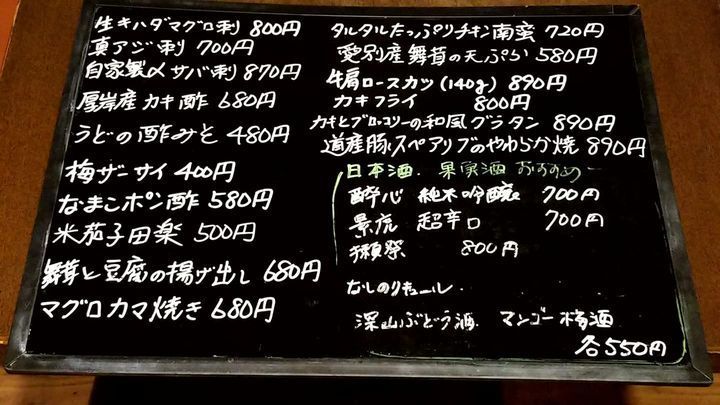 生キハダマグロ刺 800円
真アジ刺 700円
自家製〆サバ刺 870円
厚岸産カキ酢 680円
うどの酢みそ 480円
梅ザーサイ 400円
なまこポン酢 580円
米茄子田楽 500円
舞茸と豆腐の揚げ出し 680円
マグロカマ焼き 680円
タルタルたっぷりチキン南蛮 720円
愛別産舞茸の天ぷら 580円
牛肩ロースカツ(140g) 890円
カキフライ 800円
カキとブロッコリーの和風グラタン 890円
道産豚スペアリブのやわらか焼 890円
日本酒. 果実酒 おすすめ
酔心 純米吟醸 700円
景虎 超辛口 700円
獺祭 800円
なしのリキュール
深山ぶどう酒. マンゴー梅酒
各550円